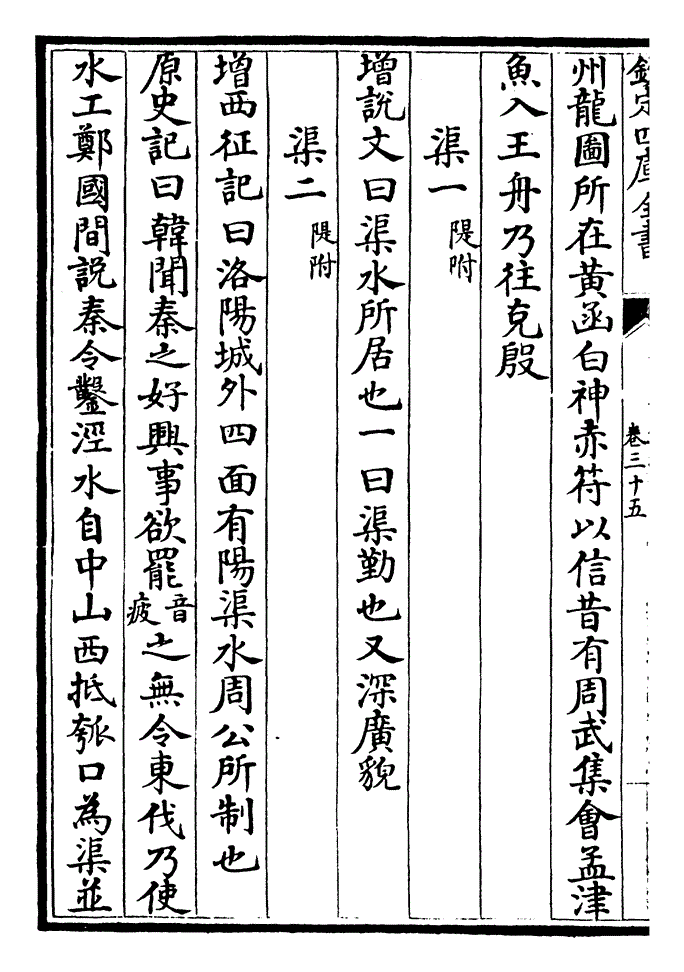 欽定四庫全書
卷三十五
州龍圖所在黃函白神赤符以信昔有周武集會孟津
魚入王舟乃往克殷
渠一 隄附
增說文曰渠水所居也一曰渠勤也又深廣貌
渠二 隄附
增西征記曰洛陽城外四面有陽渠水周公所制也
原史記曰韓聞秦之好興事欲罷音疲之無令東伐乃使
水工鄭國間說秦令鑿涇水自中山西抵瓠口為渠並